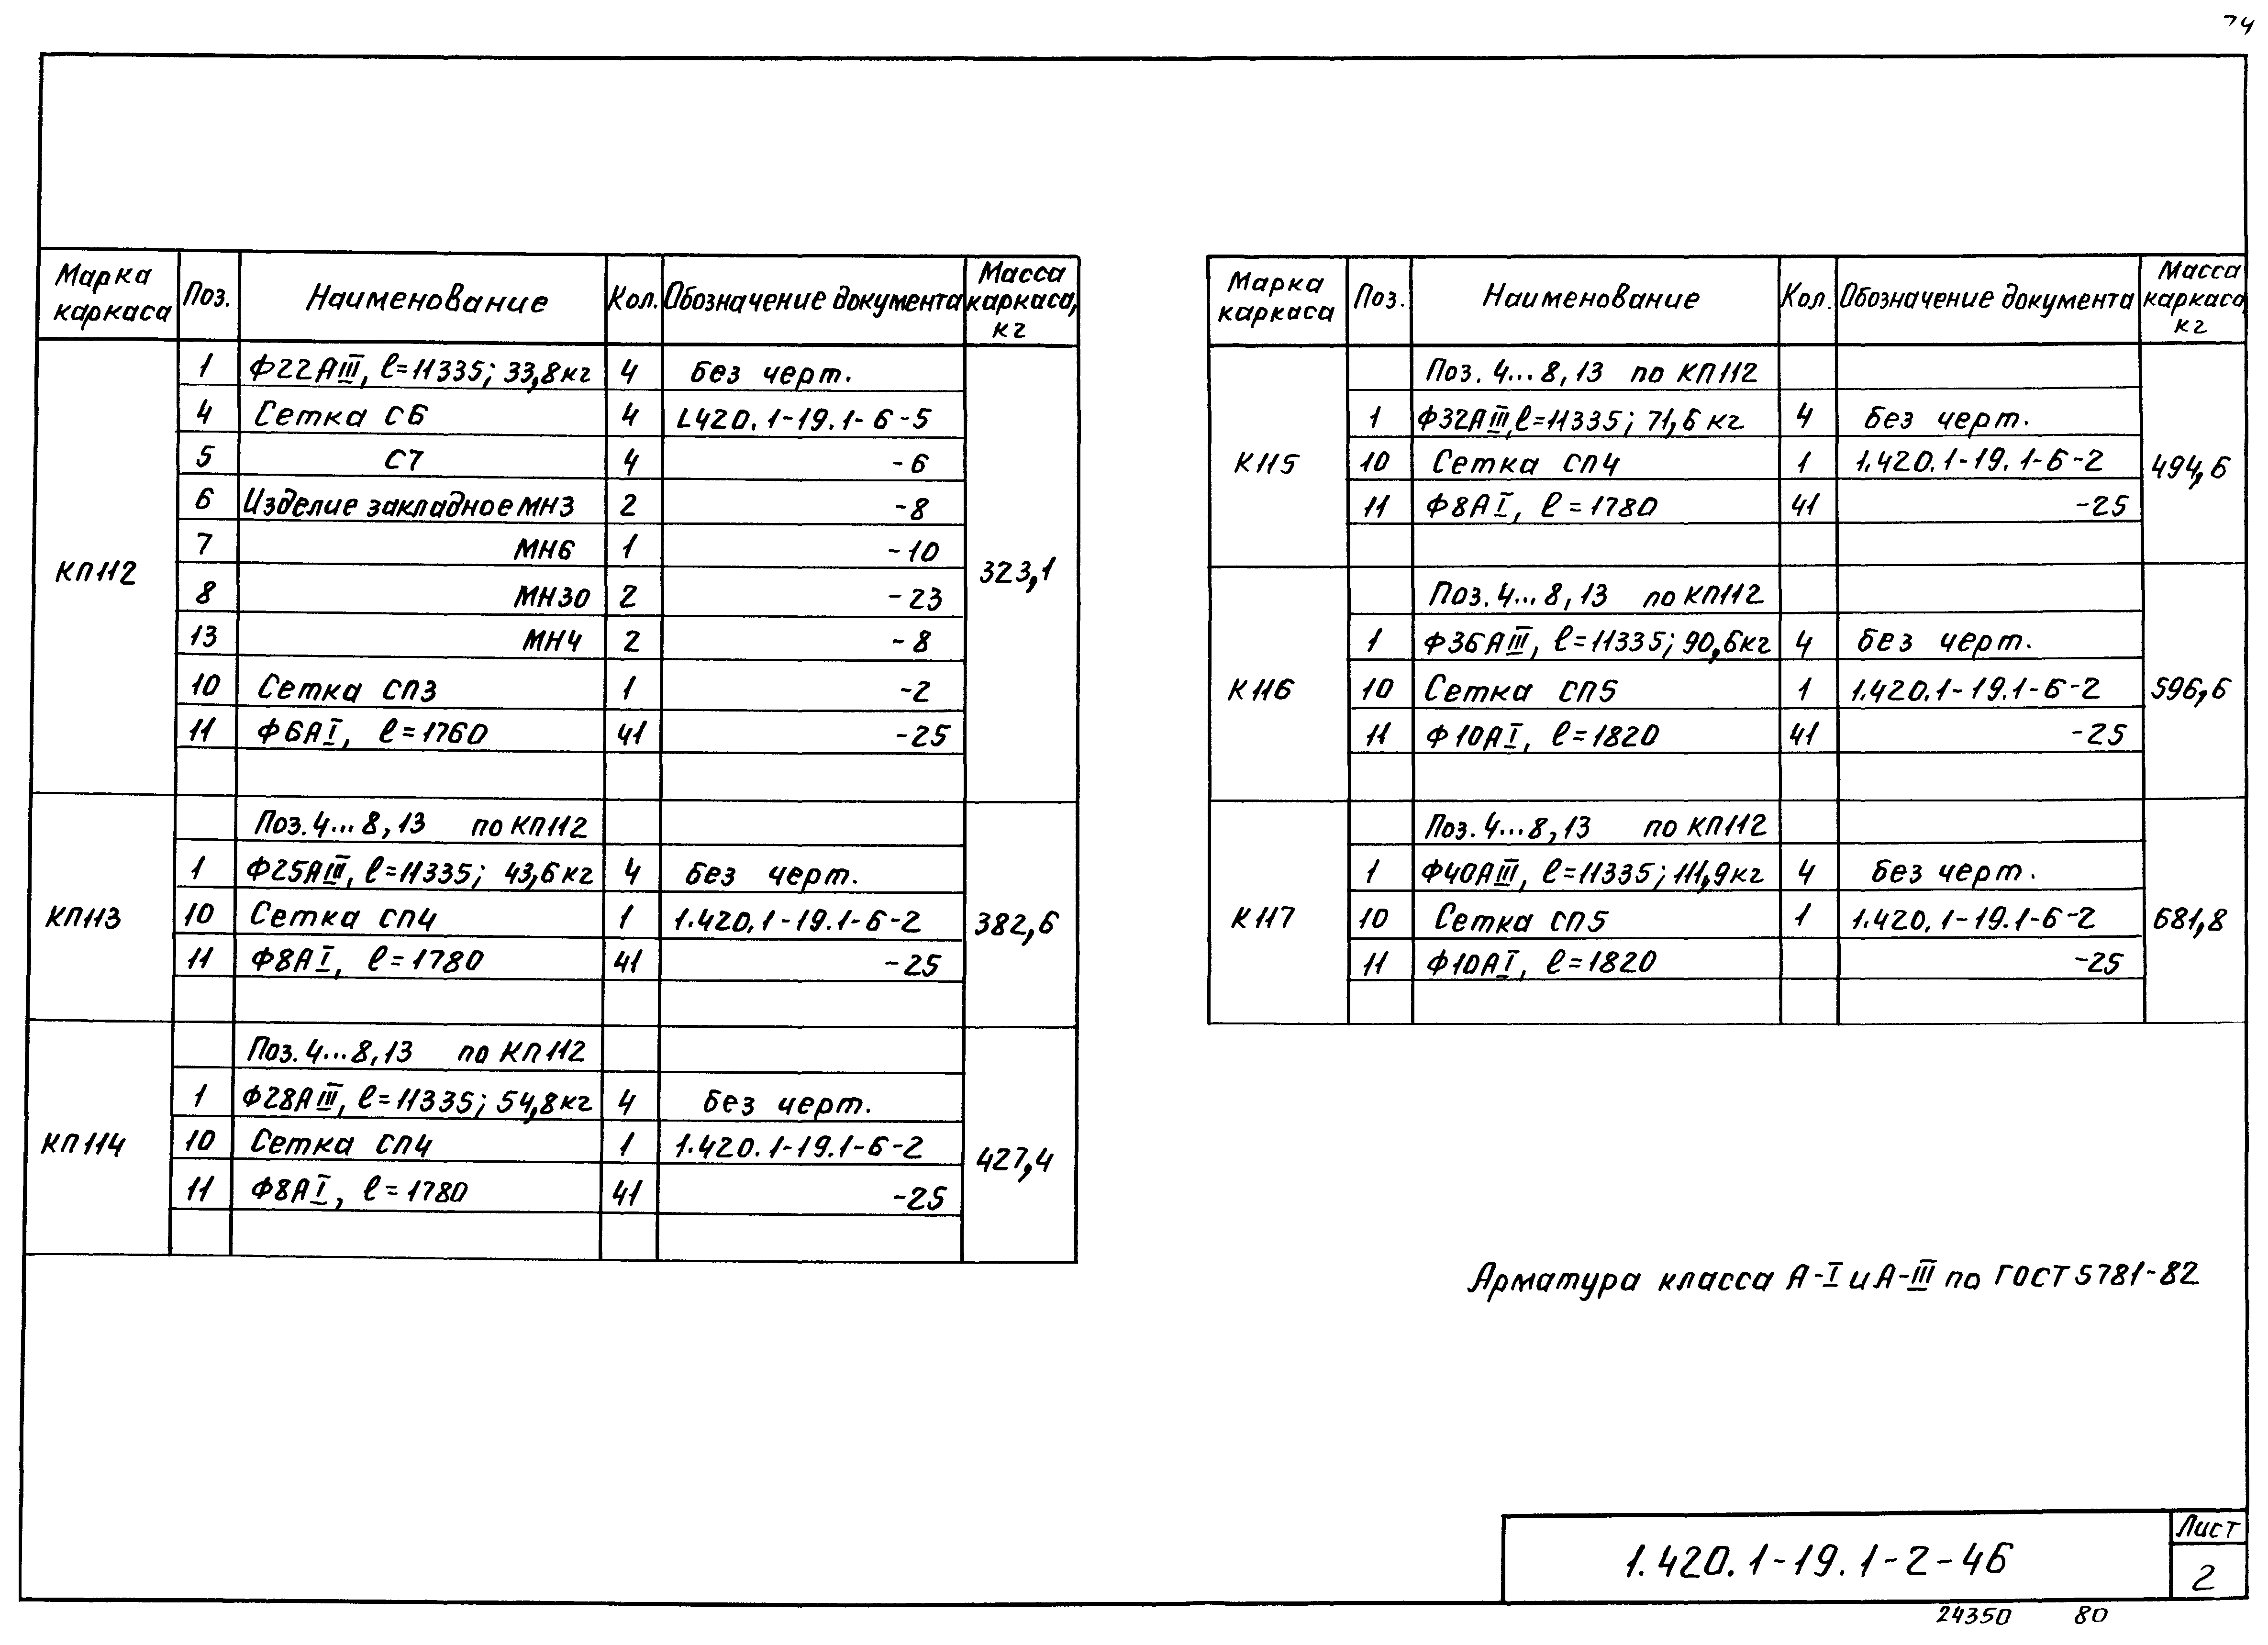 74
Марка каркаса | Поз. | Наименование | Кол. | Обозначение документа | Масса каркаса, кг
КП112 | 1 | Ф22АIII, ℓ=11335; 33,8кг | 4 | без черт. | 323,1
4 | Сетка С6 | 4 | 1.420.1-19.1-6-5
5 | С7 | 4 | -6
6 | Изделие закладное МН3 | 2 | -8
7 | МН6 | 1 | -10
8 | МН30 | 2 | -23
13 | МН4 | 2 | -8
10 | Сетка СП3 | 1 | -2
11 | Ф6АI, ℓ=1760 | 41 | -25
КП113 | Поз. 4...8, 13 по КП112 | 382,6
1 | Ф25АIII, ℓ=11335; 43,6кг | 4 | без черт.
10 | Сетка СП4 | 1 | 1.420.1-19.1-6-2
11 | Ф8АI, ℓ=1780 | 41 | -25
КП114 | Поз. 4...8, 13 по КП112 | 427,4
1 | Ф28АIII, ℓ=11335; 54,8кг | 4 | без черт.
10 | Сетка СП4 | 1 | 1.420.1-19.1-6-2
11 | Ф8АI, ℓ=1780 | 41 | -25
Марка каркаса | Поз. | Наименование | Кол. | Обозначение документа | Масса каркаса, кг
К115 | Поз. 4...8, 13 по КП112 | 494,6
1 | Ф32АIII, ℓ=11335; 71,6кг | 4 | без черт.
10 | Сетка СП4 | 1 | 1.420.1-19.1-6-2
11 | Ф8АI, ℓ=1780 | 41 | -25
К116 | Поз. 4...8, 13 по КП112 | 596,6
1 | Ф36АIII, ℓ=11335; 90,6кг | 4 | без черт.
10 | Сетка СП5 | 1 | 1.420.1-19.1-6-2
11 | Ф10АI, ℓ=1820 | 41 | -25
К117 | Поз. 4...8, 13 по КП112 | 681,8
1 | Ф40АIII, ℓ=11335; 111,9кг | 4 | без черт.
10 | Сетка СП5 | 1 | 1.420.1-19.1-6-2
11 | Ф10АI, ℓ=1820 | -25
Арматура класса А-I и А-III по ГОСТ 5781-82
1.420.1-19.1-2-46
Лист
2
24350 80